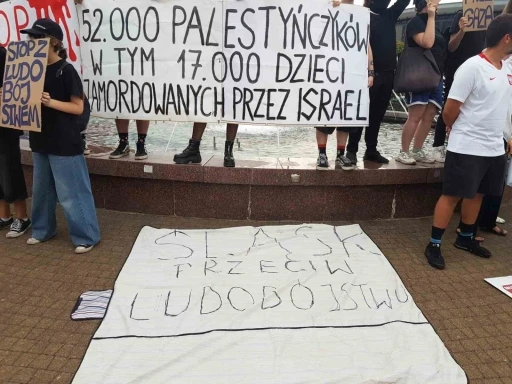 52.000 PALESTYŃCZYKÓW
W TYM 17.000 DZIECI
ZAMORDOWANYCH PRZEZ ISRAEL
STOP Z
LUDO
BÓJ
STWEM
ŚLĄSK
PRZECIW
LUDOBÓJSTWU